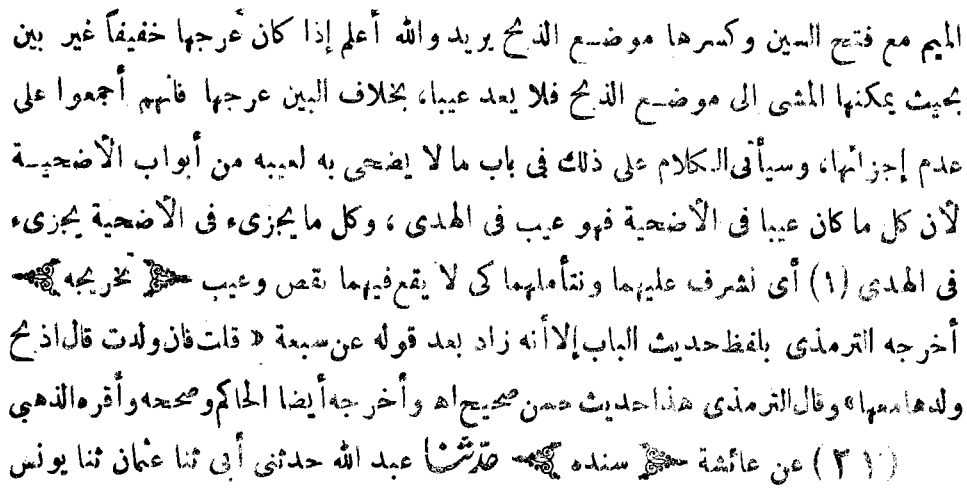 الميم مع فتح السين وكسرها موضع الذبح يريد والله أعلم إذا كان عرجها خفيفاً غير بين
بحيث يمكنها المشى الى موضع الذبح فلا يعد عيبا، بخلاف البين عرجها فانهم أجمعوا على
عدم إجزائها، وسيأتى الكلام على ذلك فى باب ما لا يضحى به لعيبه من أبواب الأضحية
لأن كل ما كان عيبا فى الأضحية فهو عيب فى الهدى ، وكل ما يجزىء فى الأضحية يجزىء
فى الهدى (١) أى نشرف عليهما ونتأملهما كى لا يقع فيهما نقص وعيب ﴿ تخريجه ﴾
أخرجه الترمذى بلفظ حديث الباب إلا أنه زاد بعد قوله عن سبعة « قلت فان ولدت قال اذبح
ولدها معها » وقال الترمذى هذا حديث حسن صحيح اه وأخرجه أيضا الحاكم وصححه وأقره الذهبي
(٢١) عن عائشة ﴿ سنده ﴾ حدثنا عبد الله حدثنى أبى ثنا عثمان ثنا يونس